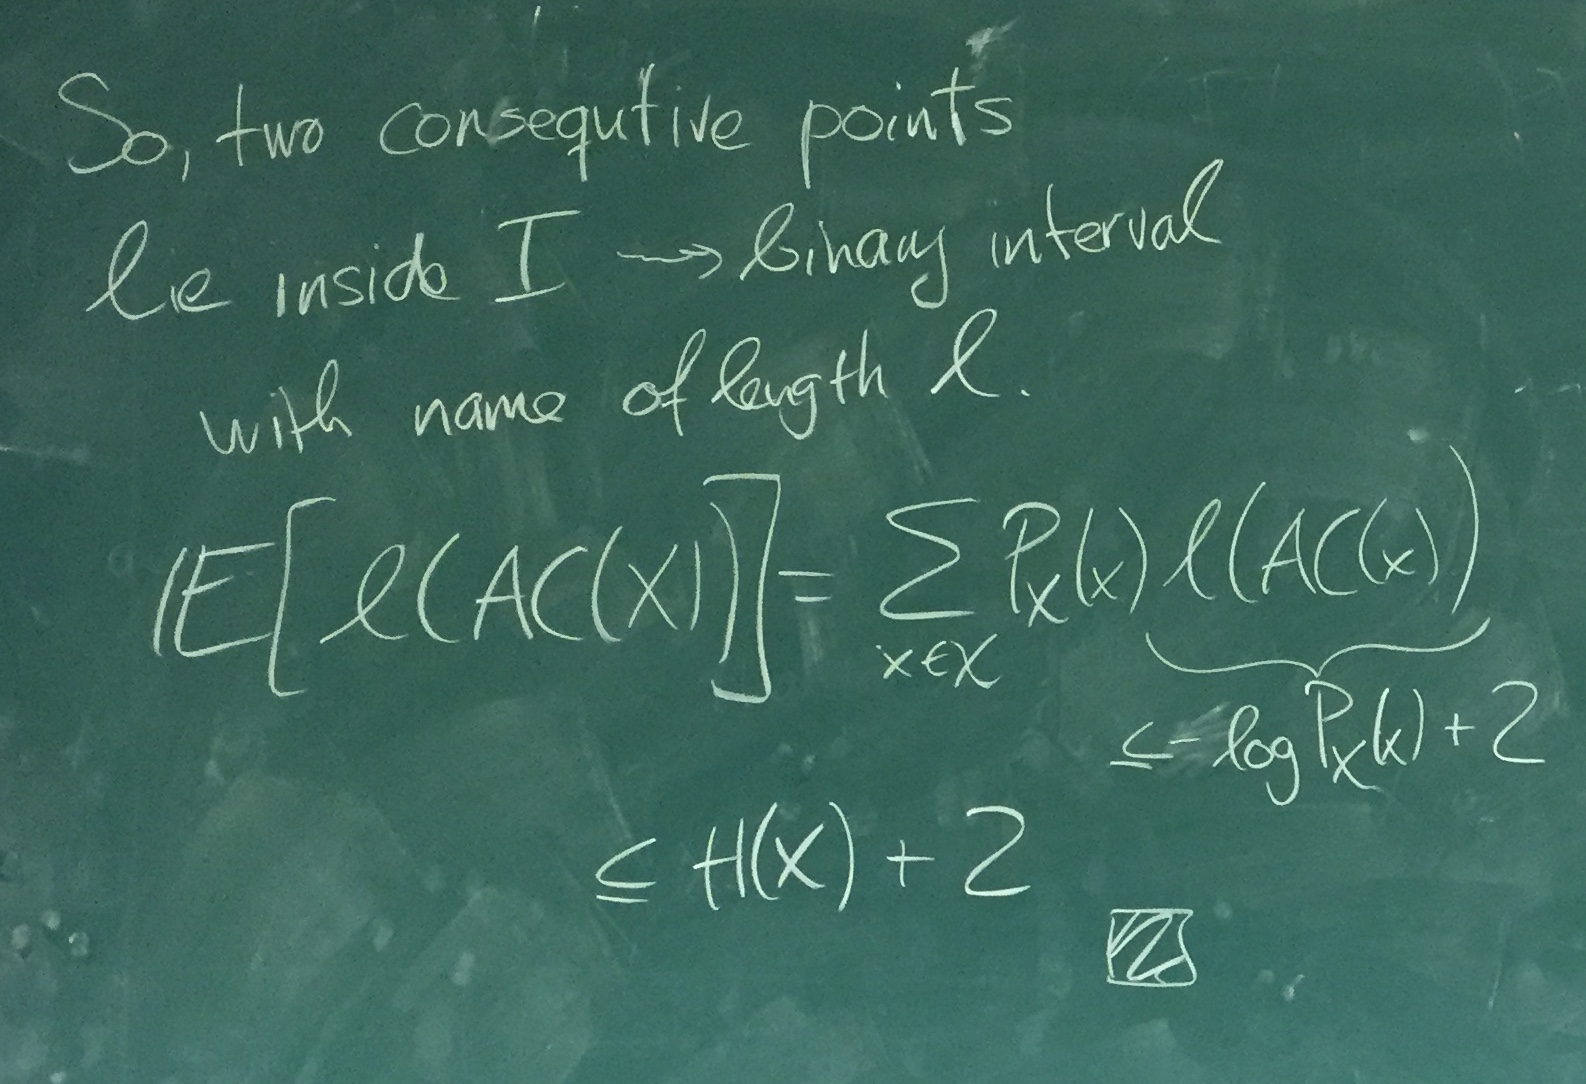 So, two consequtive points
lie inside I ⇝ binary interval
with name of length ℓ.
𝔼[ℓ(AC(X)] = Σ_{x∈𝒳} P_X(x) ℓ(AC(x))
≤ -log P_X(x) + 2
≤ H(X) + 2